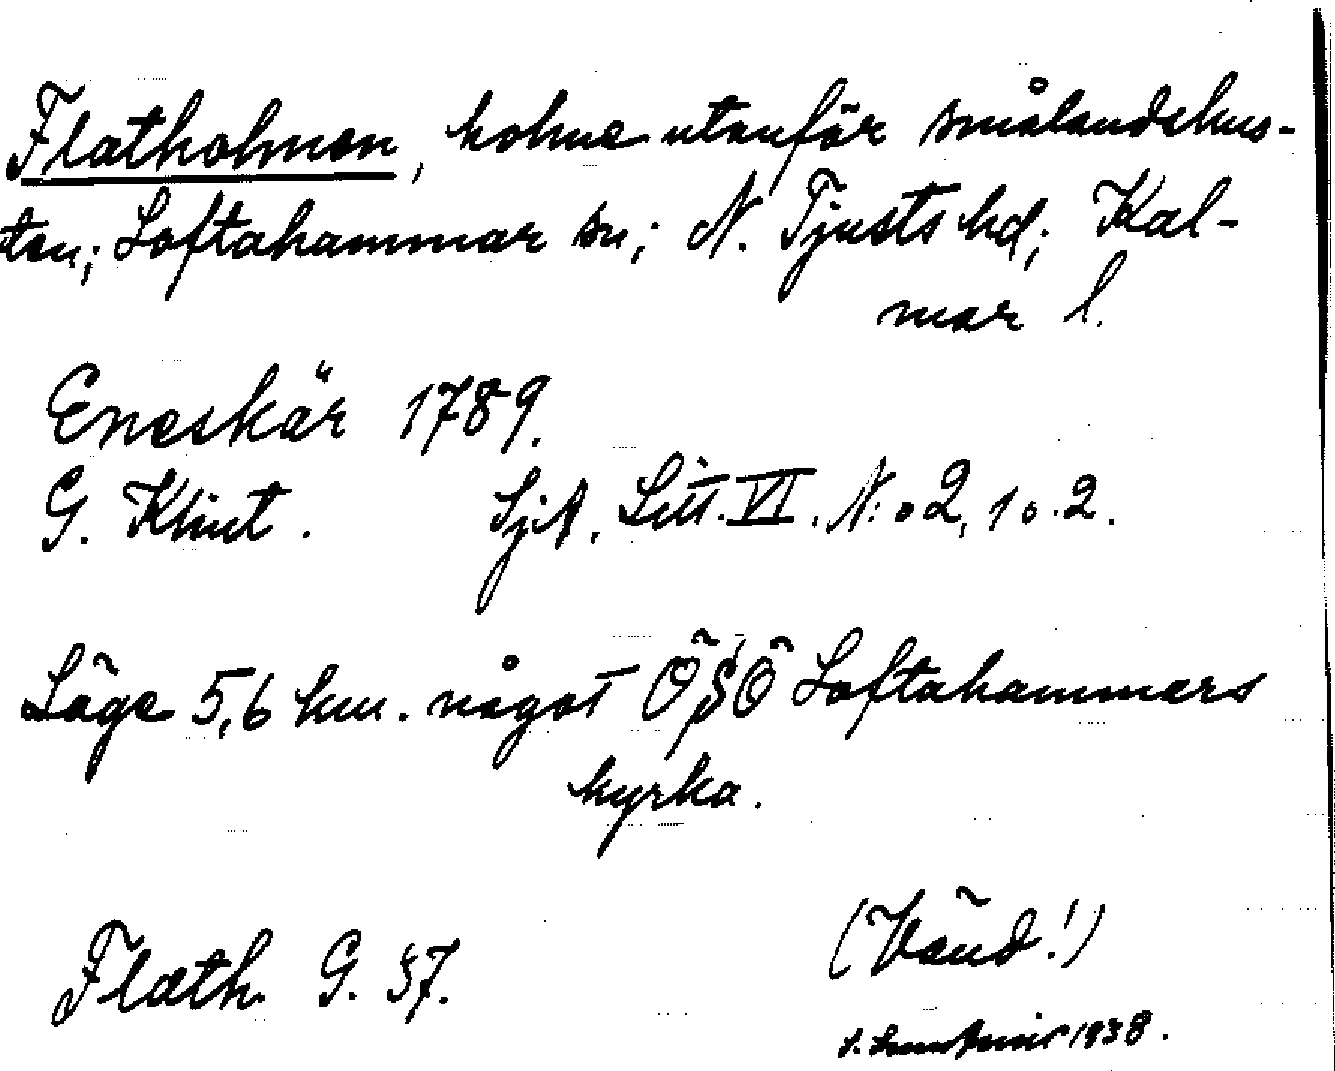 Flatholmen, holme utanför smålandskus-
ten; Loftahammar sn; N. Tjusts hd; Kal-
mar l.
Eneskär 1789.
G. Klint. SjA. Litt. VI. N:o 2, 1 o. 2.
Läge 5,6 km. något ÖSÖ Loftahammars
kyrka.
Flath. G. 37.
(Vänd!)
1938.